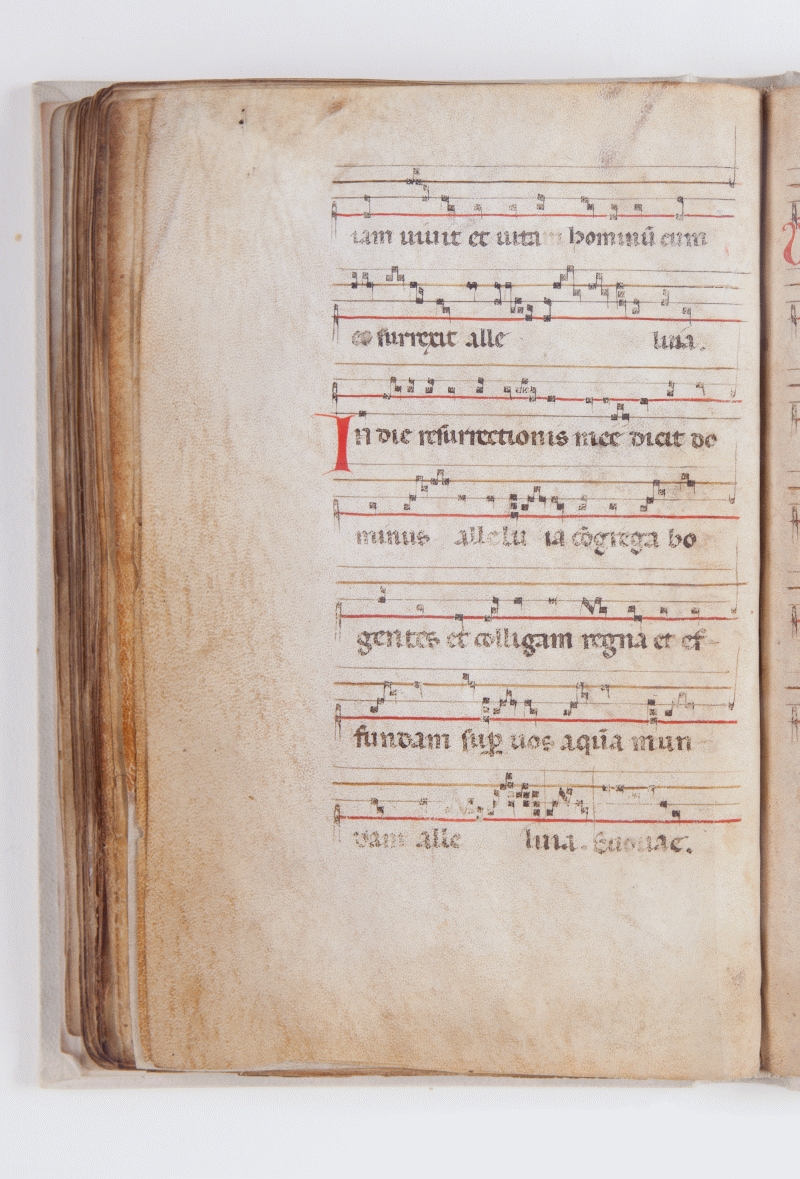 iam uiuit et uitam hominū cum
eo surrexit alle luia.
In die resurrectionis mee dicit do
minus allelu ia cōgrega bo
gentes et colligam regna et ef-
fundam suꝑ uos aquā mun
dam alle luia. Euouae.